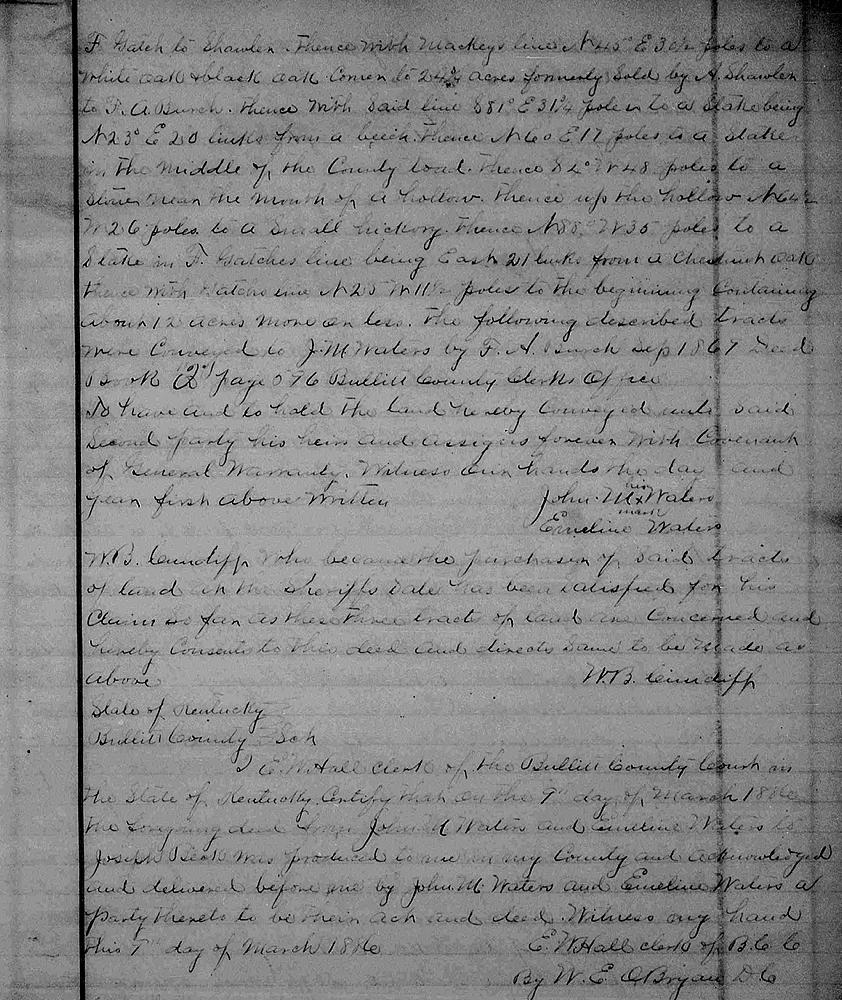 F Gatch to Shawler. Thence with Mackeys line N 45° E 30½ poles to a
White oak & black oak Corner to 24¾ acres formerly Sold by A. Shawler
to F. A. Burch. thence With Said line S 81° E 31¼ poles to a Stake being
N 23° E 20 links from a beech. thence N 60 E 17 poles to a Stake
in the Middle of the County load. thence S 2° W 48 poles to a
Stone near the Mouth of a hollow. thence up the hollow N 64½
W 26 poles to a Small hickory. thence N 88° W 35 poles to a
Stake in F. Gatches line being East 21 links from a Chestnut oak
thence with Waters line N 25 W 11½ poles to the beginning Containing
about 12 acres More or less. The following described tracts
were Conveyed to J. M Waters by F. A. Burch Sep 1867 Deed
Book "2" page 596 Bullitt County Clerks Office
To have and to hold the land hereby Conveyed unto Said
Second party his heirs and assigns forever With Covenant
of General Warranty. Witness our hands the day and
year first above Written John. M his x mark Waters
Emeline Waters
W. B. Cundiff who became the purchaser of Said tracts
of land at the Sheriffs Sale has been Satisfied for his
Claim so far as these three tracts of land are Concerned and
hereby Consents to this deed and directs Same to be Made as
above W. B. Cundiff
State of Kentucky
Bullitt County Sch
I E. W. Hall clerk of the Bullitt County Court in
the State of Kentucky Certify that on the 7th day of March 1886
the foregoing deed from John M Waters and Emeline Waters to
Joseph Beck Was produced to me in my County and acknowledged
and delivered before me by John. M. Waters and Emeline Waters a
party thereto to be their act and deed. Witness my hand
this 7th day of March 1886 E. W Hall clerk of B. C. C
By W. E. OBryan D C